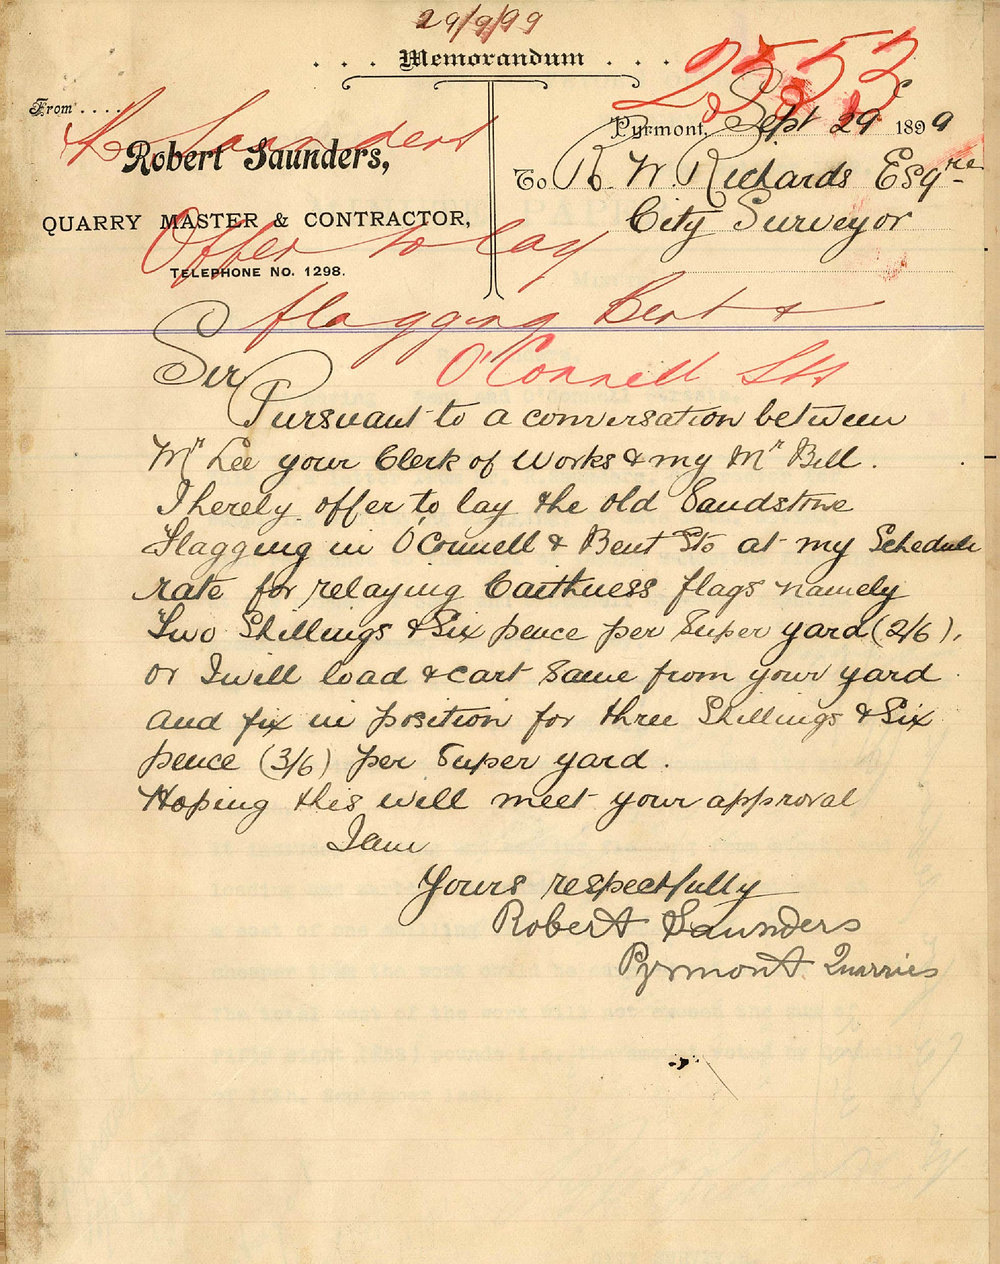 29/9/99
. . . Memorandum . . .
2553
From . . . .
R Saunders
Pyrmont, Sept 29 1899
Robert Saunders,
To R. W. Richards Esqre
QUARRY MASTER & CONTRACTOR,
City Surveyor
Offer to lay
TELEPHONE NO. 1298.
flagging Bent &
O'Connell Sts
Sir
Pursuant to a conversation between
Mr Lee your Clerk of Works & my Mr Bell.
I herely offer to lay the old Sandstone
Flagging in O'Connell & Bent Sts at my Schedule
rate for relaying Caithness flags namely
Two Shillings & Six pence per Super yard (2/6),
or I will load & cart same from your yard
and fix in position for three Shillings & Six
pence (3/6) per Super yard.
Hoping this will meet your approval
I am
Yours respectfully
Robert Saunders
Pyrmont Quarries